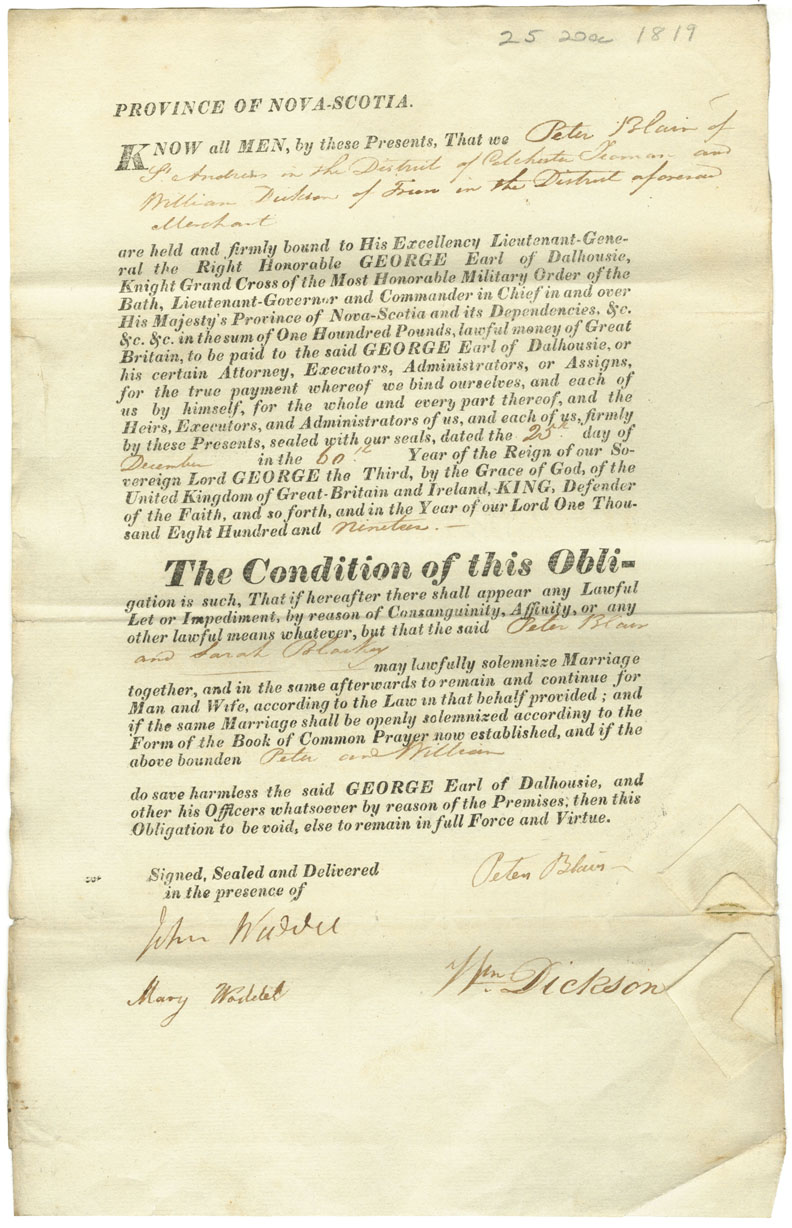 25 Dec 1819
PROVINCE OF NOVA-SCOTIA.
KNOW all MEN, by these Presents, That we Peter Blair of
St Andrews in the District of Colchester Yeoman and
William Dickson of Truro in the District aforesaid
Merchant
are held and firmly bound to His Excellency Lieutenant-Gene-
ral the Right Honorable GEORGE Earl of Dalhousie,
Knight Grand Cross of the Most Honorable Military Order of the
Bath, Lieutenant-Governor and Commander in Chief in and over
His Majesty's Province of Nova-Scotia and its Dependencies, &c.
&c. &c. in the sum of One Houndred Pounds, lawful money of Great
Britain, to be paid to the said GEORGE Earl of Dalhousie, or
his certain Attorney, Executors, Administrators, or Assigns,
for the true payment whereof we bind ourselves, and each of
us by himself, for the whole and every part thereof, and the
Heirs, Executors, and Administrators of us, and each of us, firmly
by these Presents, sealed with our seals, dated the 25th day of
December in the 60th Year of the Reign of our So-
vereign Lord GEORGE the Third, by the Grace of God, of the
United Kingdom of Great-Britain and Ireland, KING, Defender
of the Faith, and so forth, and in the Year of our Lord One Thou-
sand Eight Hundred and nineteen.—
The Condition of this Obli-
gation is such, That if hereafter there shall appear any Lawful
Let or Impediment, by reason of Consanguinity, Affinity, or any
other lawful means whatever, but that the said Peter Blair
and Sarah Blackey
may lawfully solemnize Marriage
together, and in the same afterwards to remain and continue for
Man and Wife, according to the Law in that behalf provided; and
if the same Marriage shall be openly solemnized accordiny to the
Form of the Book of Common Prayer now established, and if the
above bounden Peter and William
do save harmless the said GEORGE Earl of Dalhousie, and
other his Officers whatsoever by reason of the Premises, then this
Obligation to be void, else to remain in full Force and Virtue.
Signed, Sealed and Delivered
in the presence of
Peter Blair
John Waddel
Wm. Dickson
Mary Waddel